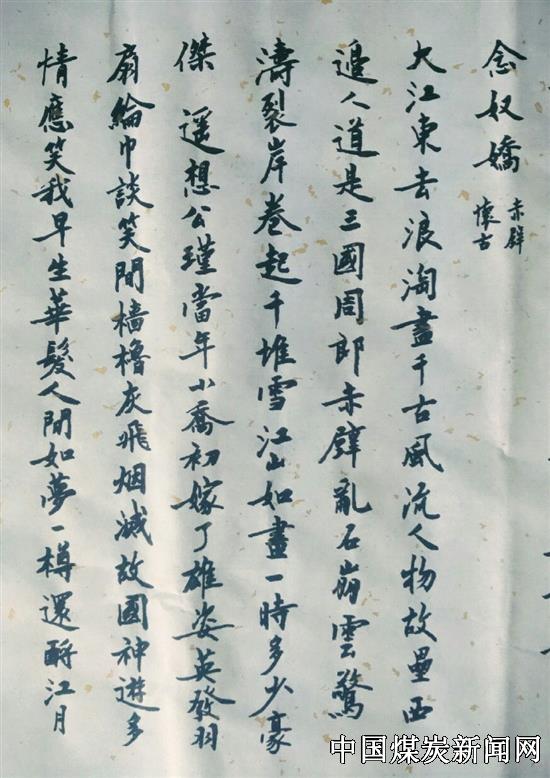 念奴嬌
赤壁
懷古
大江東去浪淘盡千古風流人物故壘西
邊人道是三國周郎赤壁亂石崩雲驚
濤裂岸卷起千堆雪江山如畫一時多少豪
傑 遥想公瑾當年小喬初嫁了雄姿英發羽
扇綸巾談笑間檣櫓灰飛烟滅故國神遊多
情應笑我早生華髮人間如夢一樽還酹江月
中国煤炭新闻网